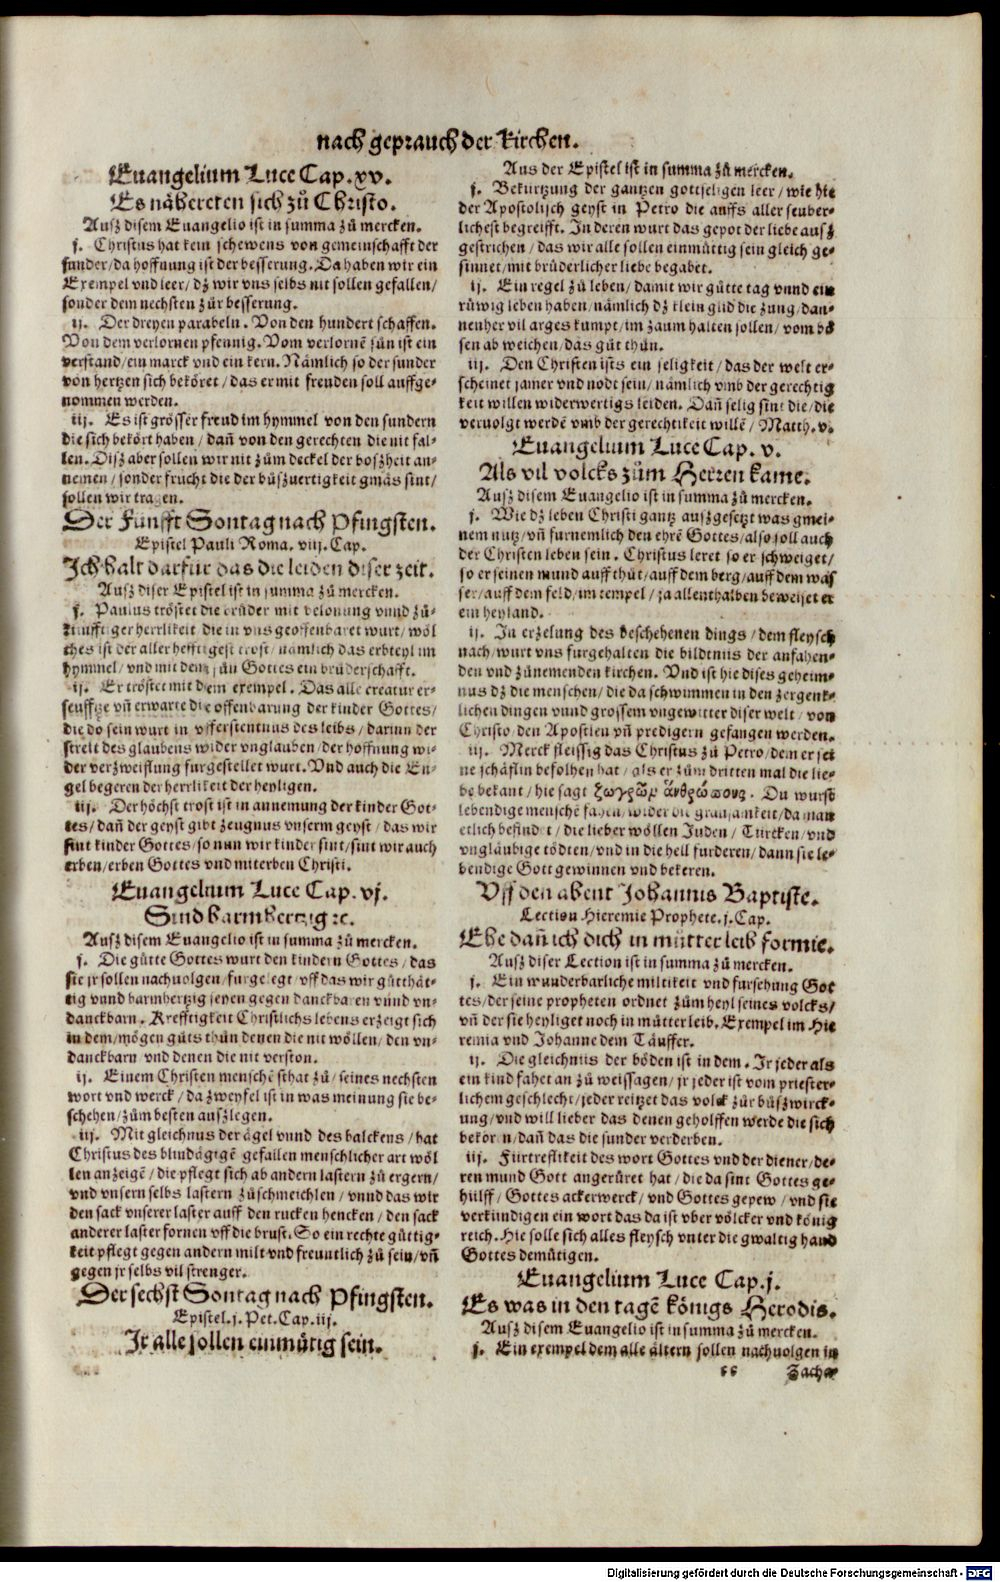 nach geprauch der Kirchen.
Euangelium Luce Cap. xv.
Es näbereten sich zů Christo.
Ausz disem Euangelio ist in summa zů mercken.
j. Christus hat kein schewens von gemeinschafft der
sunder/da hoffnung ist der besserung. Da haben wir ein
Exempel vnd leer/ dz wir vns selbs nit sollen gefallen/
sonder dem nechsten zůr besserung.
ij. Der dreyen parabeln. Von den hundert schaffen.
Von dem verlornen pfennig. Vom verlornē sun ist ein
verstand/ein marck vnd ein kern. Nämlich so der sunder
von hertzen sich beköret/das er mit freuden soll auffge-
nommen werden.
iij. Es ist grösser freud im hymmel von den sundern
die sich bekört haben/ dañ von den gerechten die nit fal-
len. Disz aber sollen wir nit zům deckel der boszheit an-
nemen/sonder frucht die der bůszuertigkeit gmäs sint/
sollen wir tragen.
Der Funfft Sontag nach Pfingsten.
Epistel Pauli Roma. viij. Cap.
Ich halt darfur das die leiden diser zeit.
Ausz diser Epistel ist in summa zů mercken.
j. Paulus tröstet die brüder mit belonung vnnd zů-
kunfftiger herrlikeit die in vns geoffenbaret wurt/wöl
ches ist der aller hefftigest trost/nämlich das erbteyl im
hymmel/vnd mit dem sun Gottes ein brüderschafft.
ij. Er tröstet mit dem exempel. Das alle creatur er-
seufftze vñ erwarte die offenbarung der kinder Gottes/
die do sein wurt in vfferstentnus des leibs/darinn der
streit des glaubens wider vnglauben/der hoffnung wi-
der verzweiflung furgestellet wurt. Vnd auch die En-
gel begeren der herrlikeit der heyligen.
iij. Der höchst trost ist in annemung der kinder Got-
tes/dañ der geyst gibt zeugnus vnserm geyst/das wir
sint kinder Gottes/so nun wir kinder sint/sint wir auch
erben/erben Gottes vnd miterben Christi.
Euangelium Luce Cap. vj.
Sind barmhertzig ꝛc.
Ausz disem Euangelio ist in summa zů mercken.
j. Die gütte Gottes wurt den kindern Gottes/das
sie jr sollen nachuolgen/furgelegt/vff das wir gütthät-
tig vnnd barmhertzig seyen gegen danckbaren vnnd vn-
danckbarn. Krefftigkeit Christlichs lebens erzeigt sich
in dem/mögen gůts thůn denen die nit wöllen/den vn-
danckbarn vnd denen die nit verston.
ij. Einem Christen menschē sthat zů/seines nechsten
wort vnd werck/da zweyfel ist in was meinung sie be-
schehen/zům besten auszlegen.
iij. Mit gleichnus der ägel vnnd des balckens/hat
Christus des blindägigē gefallen menschlicher art wöl
len anzeigē/die pflegt sich ab andern lastern zů ergern/
vnd vnsern selbs lastern zůschmeichlen/vnnd das wir
den sack vnserer laster auff den rucken hencken/den sack
anderer laster fornen vff die brust. So ein rechte güttig-
keit pflegt gegen andern milt vnd freuntlich zů sein/vñ
gegen jr selbs vil strenger.
Der sechst Sontag nach Pfingsten.
Epistel. j. Pet. Cap. iij.
Ir alle sollen einmütig sein.
Aus der Epistel ist in summa zů mercken.
j. Bekurtzung der gantzen gottseligen leer/wie hie
der Apostolisch geyst in Petro die auffs aller seuber-
lichest begreifft. In deren wurt das gepot der liebe ausz
gestrichen/das wir alle sollen einmüttig sein gleich ge-
sinnet/mit brüderlicher liebe begabet.
ij. Ein regel zů leben/damit wir gütte tag vnnd ein
rüwig leben haben/nämlich dz klein glid die zung/dan-
nenher vil arges kumpt/im zaum halten sollen/vom bö
sen ab weichen/das gůt thůn.
iij. Den Christen ists ein seligkeit/das der welt er-
scheinet jamer vnd nodt sein/nämlich vmb der gerechtig
keit willen widerwertigs leiden. Dañ selig sint die/die
veruolgt werdē vmb der gerechtikeit willē/Matth. v.
Euangelium Luce Cap. v.
Als vil volcks zům Herren kame.
Ausz disem Euangelio ist in summa zů mercken.
j. Wie dz leben Christi gantz auszgesetzt was gmei-
nem nutz/vñ furnemlich den ehrē Gottes/also soll auch
der Christen leben sein. Christus leret so er schweiget/
so er seinen mund auff thůt/auff dem berg/auff dem was
ser/auff dem feld/im tempel/ja allenthalben beweiset er
ein heyland.
ij. In erzelung des beschehenen dings/dem fleysch
nach/wurt vns furgehalten die bildtnüs der anfahen-
den vnd zůnemenden kirchen. Vnd ist hie dises geheim-
nus dz die menschen/die da schwummen in den zergenk-
lichen dingen vnnd grossem vngewitter diser welt/von
Christo/den Apostlen vñ predigern gefangen werden.
iij. Merck fleissig das Christus zů Petro/dem er sei
ne schäflin befolhen hat/als er zům dritten mal die lie-
be bekant/hie sagt ζωγρῶν ἀνθρώπους. Du wurst
lebendige menschē fahen/wider die grausamkeit/da man
etlich befindet/die lieber wöllen Juden/Türcken/vnd
vngläubige tödten/vnd in die hell furderen/dann sie le-
bendige Gott gewinnen vnd bekeren.
Vff den abent Johannis Baptiste.
Lection Hieremie Prophete. j. Cap.
Ehe dañ ich dich in můtter leib formie.
Ausz diser Lection ist in summa zů mercken.
j. Ein wunderbarliche miltikeit vnd fursehung Got
tes/der seine propheten ordnet zům heyl seines volcks/
vñ der sie heyliget noch in můtter leib. Exempel im Hie
remia vnd Johanne dem Täuffer.
ij. Die gleichnüs der böden ist in dem. Ir jeder als
ein kind fahet an zů weissagen/jr jeder ist vom priester-
lichem geschlecht/jeder reitzet das volck zůr bůszwirck-
ung/vnd will lieber das denen geholffen werde die sich
bekören/dañ das die sunder verderben.
iij. Fürtreflikeit des wort Gottes vnd der diener/de-
ren mund Gott angerüret hat/die da sint Gottes ge-
hülff/Gottes ackerwerck/vnd Gottes gepew/vnd sie
verkündigen ein wort das da ist vber völcker vnd könig
reich. Hie solle sich alles fleysch vnter die gwaltig hand
Gottes demütigen.
Euangelium Luce Cap. j.
Es was in den tagē königs Herodis.
Ausz disem Euangelio ist in summa zů mercken.
j. Ein exempel dem alle ältern sollen nachuolgen in
Zacha
Digitalisierung gefördert durch die Deutsche Forschungsgemeinschaft - DFG